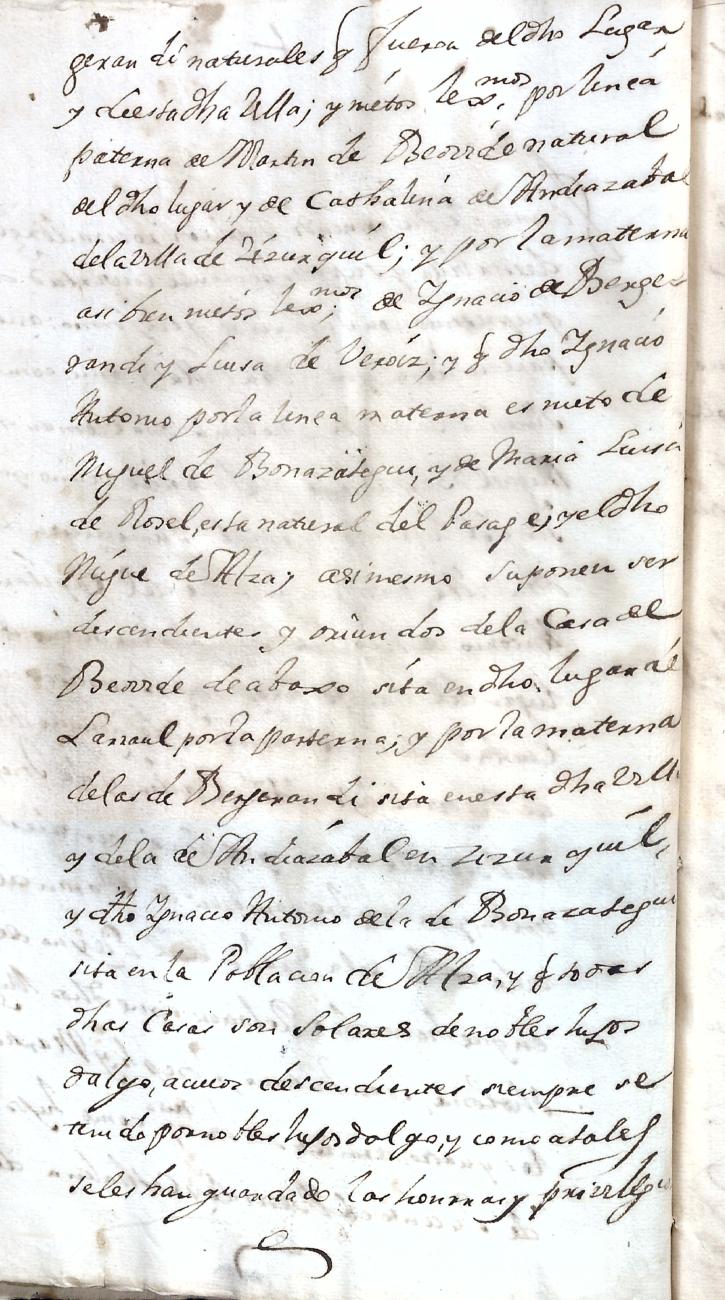 gerandi naturales q fueron del dho Lugar
y de esta dha Villa; y nietos lex.mos por linea
paterna de Martin de Beorrde natural
del dho lugar y de Cathalina de Andiazabal
de la Villa de Zizurquil; y por la materna
asi bien nietos lex.mos de Ygnacio de Berge-
randi y Luisa de Veroiz; y q dho Ygnacio
Antonio por la linea materna es nieto de
Miguel de Bonazategui, y de Maria Luisa
de Rosel, esta natural del Pasage, y el dho
Migue de Alza; asimesmo suponen ser
descendientes y oriundos de la Casa de
Beorrde de abaxo sita en dho lugar de
Larraul por la parterna; y por la materna
de las de Bergerandi sita en essa dha Villa
y de la de Andiazabal en Zizurquil,
y dho Ygnacio Antonio de la de Bonazategui
sita en la Poblacion de Alza, y q todas
dhas Casas son Solares de nobles hijos
dalgo, acuios descendientes siempre se
tenido por nobles hijosdalgo, y como a tales
seles han guardado las honrras y privilegios